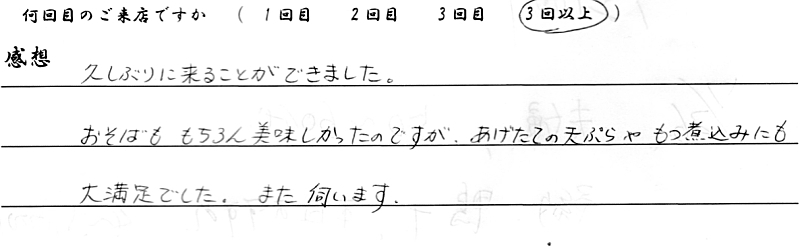 何回目のご来店ですか （ 1回目 2回目 3回目 3回以上 ）
感想
久しぶりに来ることができました。
おそばも もちろん美味しかったのですが、あげたての天ぷらや もつ煮込みにも
大満足でした。また伺います。